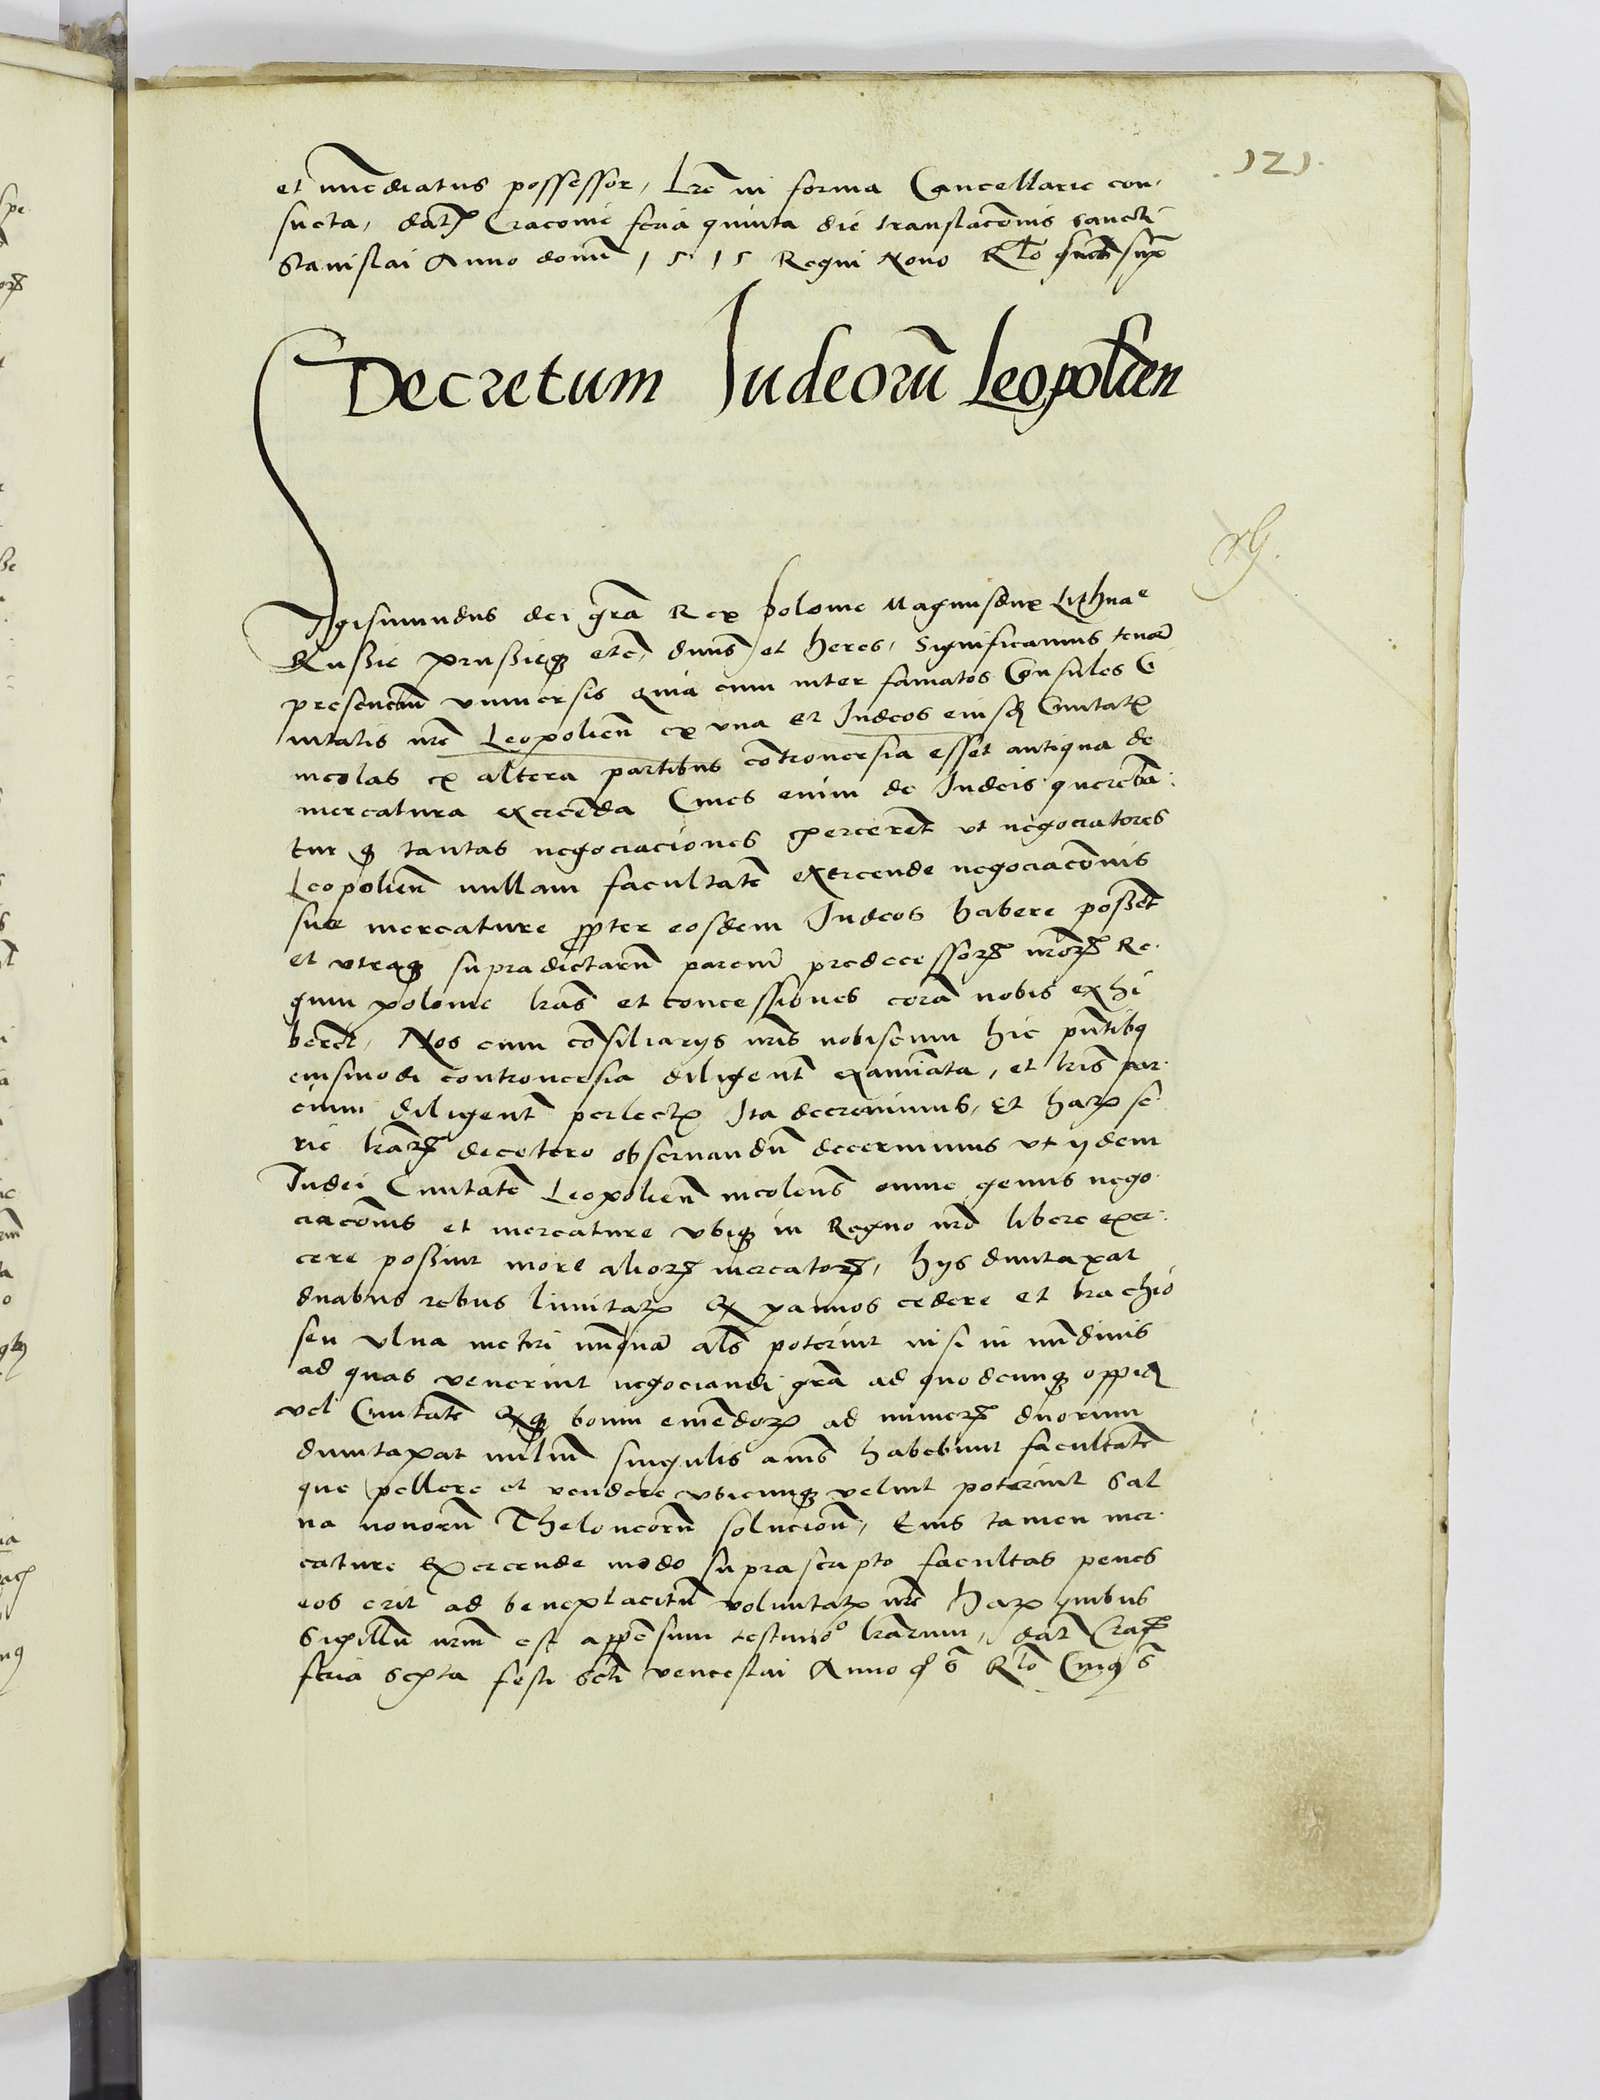 .121.
et immediatus possessor, Lrē in forma Cancellarie con,
sueta, dat Cracovie feria quinta die translacōnis sancti
Stanislai Anno domī 1515 Regni Nono Rlō
Decretum Iudeorū Leopoliēn
Sigismundus dei grā Rex polonie Magnusdux Lithuae
Russie prussieqз etc̄, dnns et heres, Significamus tenorē
presenciū universis quia cum inter famatos Consules Ci
vitatis nrē Leopoliēn ex una et Iudeos eiusd Civitatis
incolas ex altera partibus cōtroversia esset antiqua de
mercatura exercēda Cives enim de Iudeis querebā
tur qз tantas negociaciones exercerēt ut negociatores
Leopoliēn nullam facultatē exercende negociacōnis
sue mercature ppter eosdem Iudeos habere possēt
et utraqз supradictarū parciū predecessorꝝ nrōrꝝ Re
gum polonie lrās et concessiones corā nobis exhi
berēt, Nos cum cōsiliarys nrīs nobiscum hic pntibꝰ
eiusmodi controversia diligentē examīata, et lrīs par
cium diligentē perlectis Ita decrevimus, Et harꝝ se
rie lrārꝝ decetero observandū decernimus ut ydem
Iudei Civitatē Leopoliēn incolentes omne genus nego
ciacōnis et mercature ubiqз in Regno nrō libere exer
cere possint more aliorꝝ mercatorꝝ, hys duntaxat
duabus rebus limitatis Qꝫ pannos cedere et brachio
seu ulna metiri nunquā als poterint nisi in nūdinis
ad quas venerint negociandi grā ad quodcunqз oppid
vel Civitatē Qꝫqз bovin emēdorꝝ ad numerꝝ duorum
duntaxat miliū singulis anīs habebunt facultatē
que pellere et vendere ubicunqз velint poterint Sal
va novorū Theloneorū solucionē, Eius tamen mer
cature exercende modo suprascripto facultas penes
eos erit ad beneplacitū voluntatis nrē harꝝ quibus
Sigillū nrūm est appēsum testimoº lrārum, dat Crac
feria Sexta festi Scti venceslai Anno q̄ s̄ Rlō